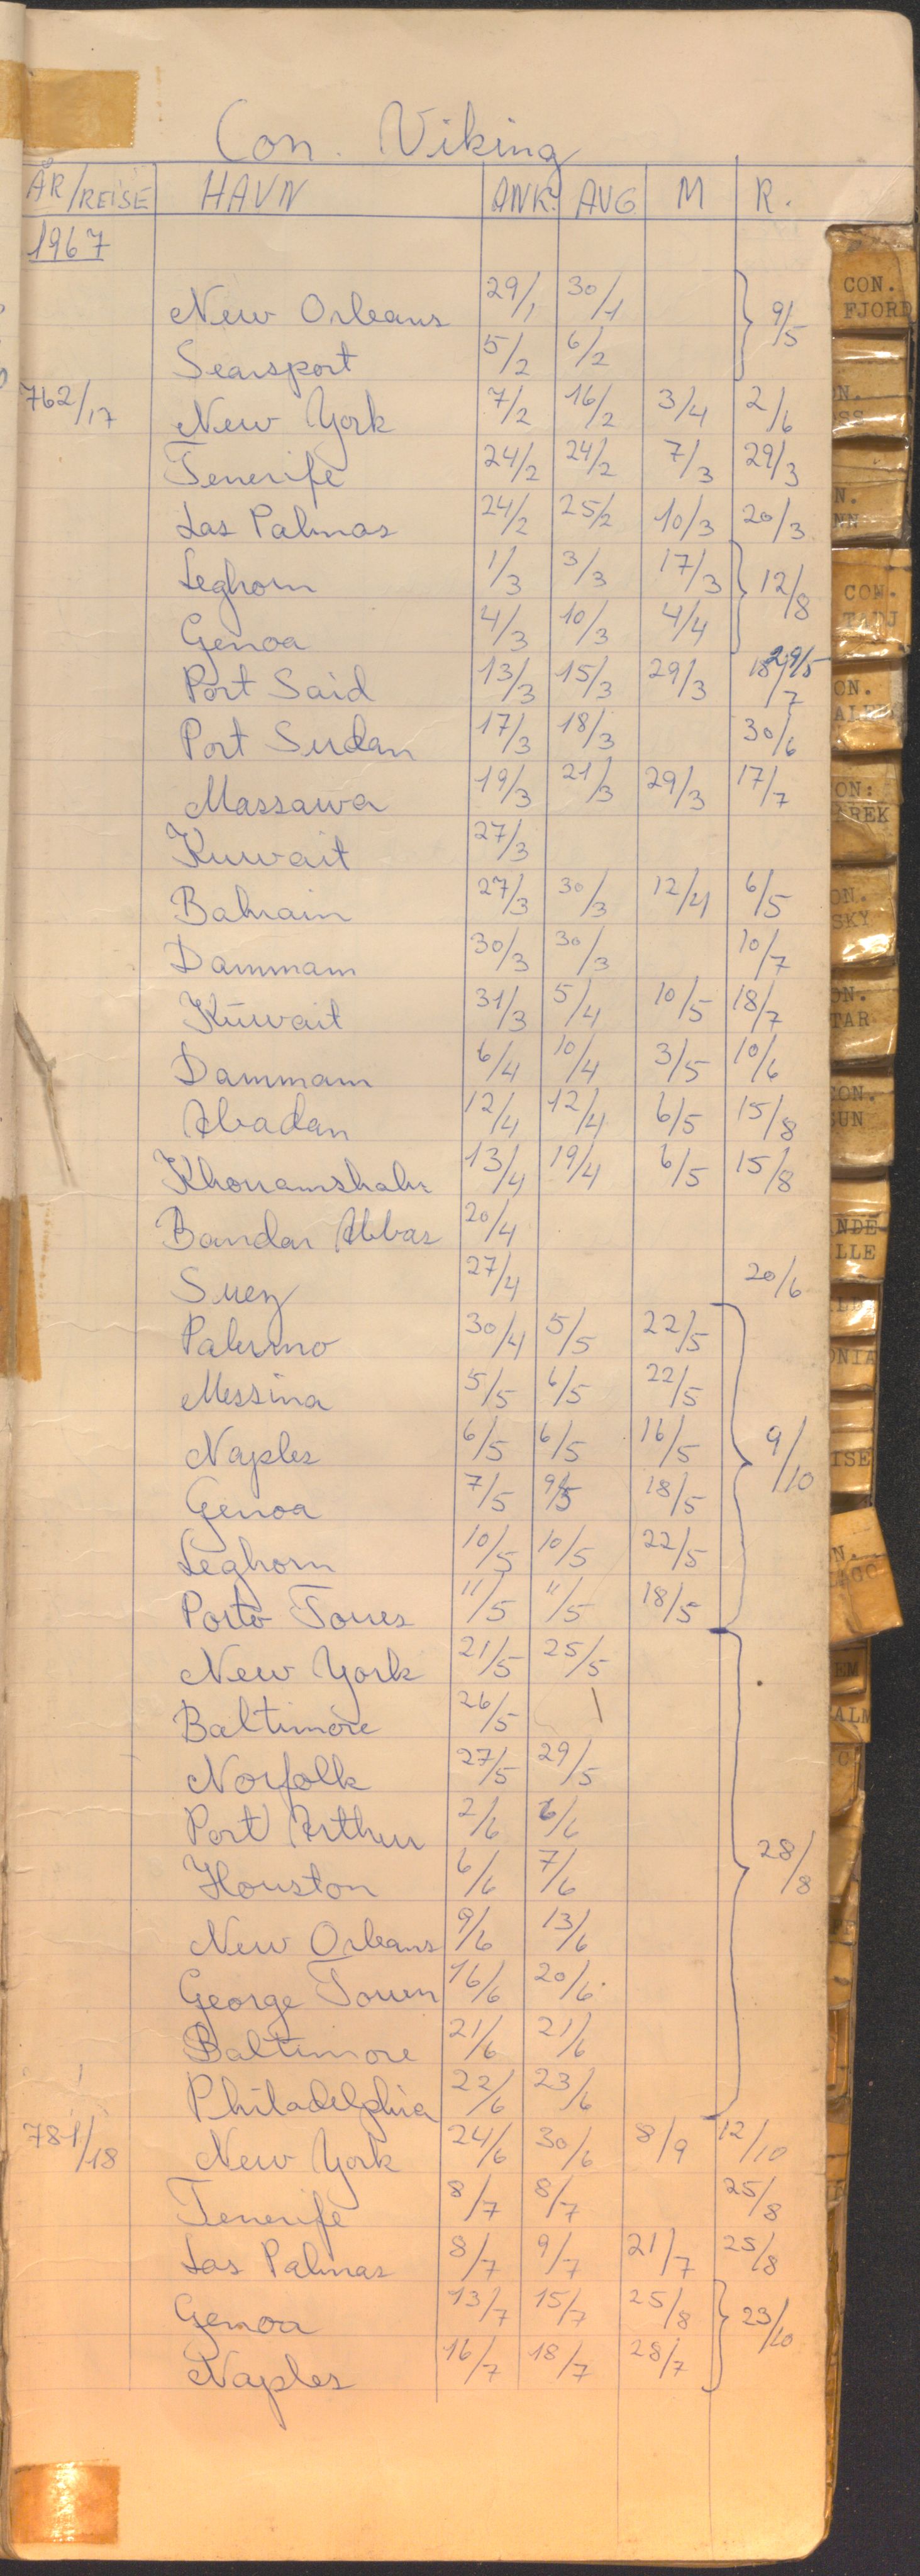 Con. Viking
ÅR/REISE HAVN ANK. AVG M R.
1967
New Orleans 29/1 30/1 9/5
Searsport 5/2 6/2
762/17 New York 7/2 16/2 3/4 2/6
Tenerife 24/2 24/2 7/3 29/3
Las Palmas 24/2 25/2 10/3 20/3
Leghorn 1/3 3/3 17/3 12/8
Genoa 4/3 10/3 4/4
Port Said 13/3 15/3 29/3 18/7 29/5
Port Sudan 17/3 18/3 30/6
Massawa 19/3 21/3 29/3 17/7
Kuwait 27/3
Bahrain 27/3 30/3 12/4 6/5
Dammam 30/3 30/3 10/7
Kuwait 31/3 5/4 10/5 18/7
Dammam 6/4 10/4 3/5 10/6
Abadan 12/4 12/4 6/5 15/8
Khorramshahr 13/4 19/4 6/5 15/8
Bandar Abbas 20/4
Suez 27/4 20/6
Palermo 30/4 5/5 22/5
Messina 5/5 6/5 22/5
Naples 6/5 6/5 16/5 9/10
Genoa 7/5 9/5 18/5
Leghorn 10/5 10/5 22/5
Porto Torres 11/5 11/5 18/5
New York 21/5 25/5
Baltimore 26/5 \
Norfolk 27/5 29/5
Port Arthur 2/6 6/6
Houston 6/6 7/6 28/8
New Orleans 9/6 13/6
George Town 16/6 20/6.
Baltimore 21/6 21/6
Philadelphia 22/6 23/6
781/18 New York 24/6 30/6 8/9 12/10
Tenerife 8/7 8/7 25/8
Las Palmas 8/7 9/7 21/7 25/8
Genoa 13/7 15/7 25/8 23/10
Naples 16/7 18/7 28/7
CON.
FJORD
CON.